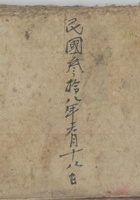 民國叁拾八年元月十八日